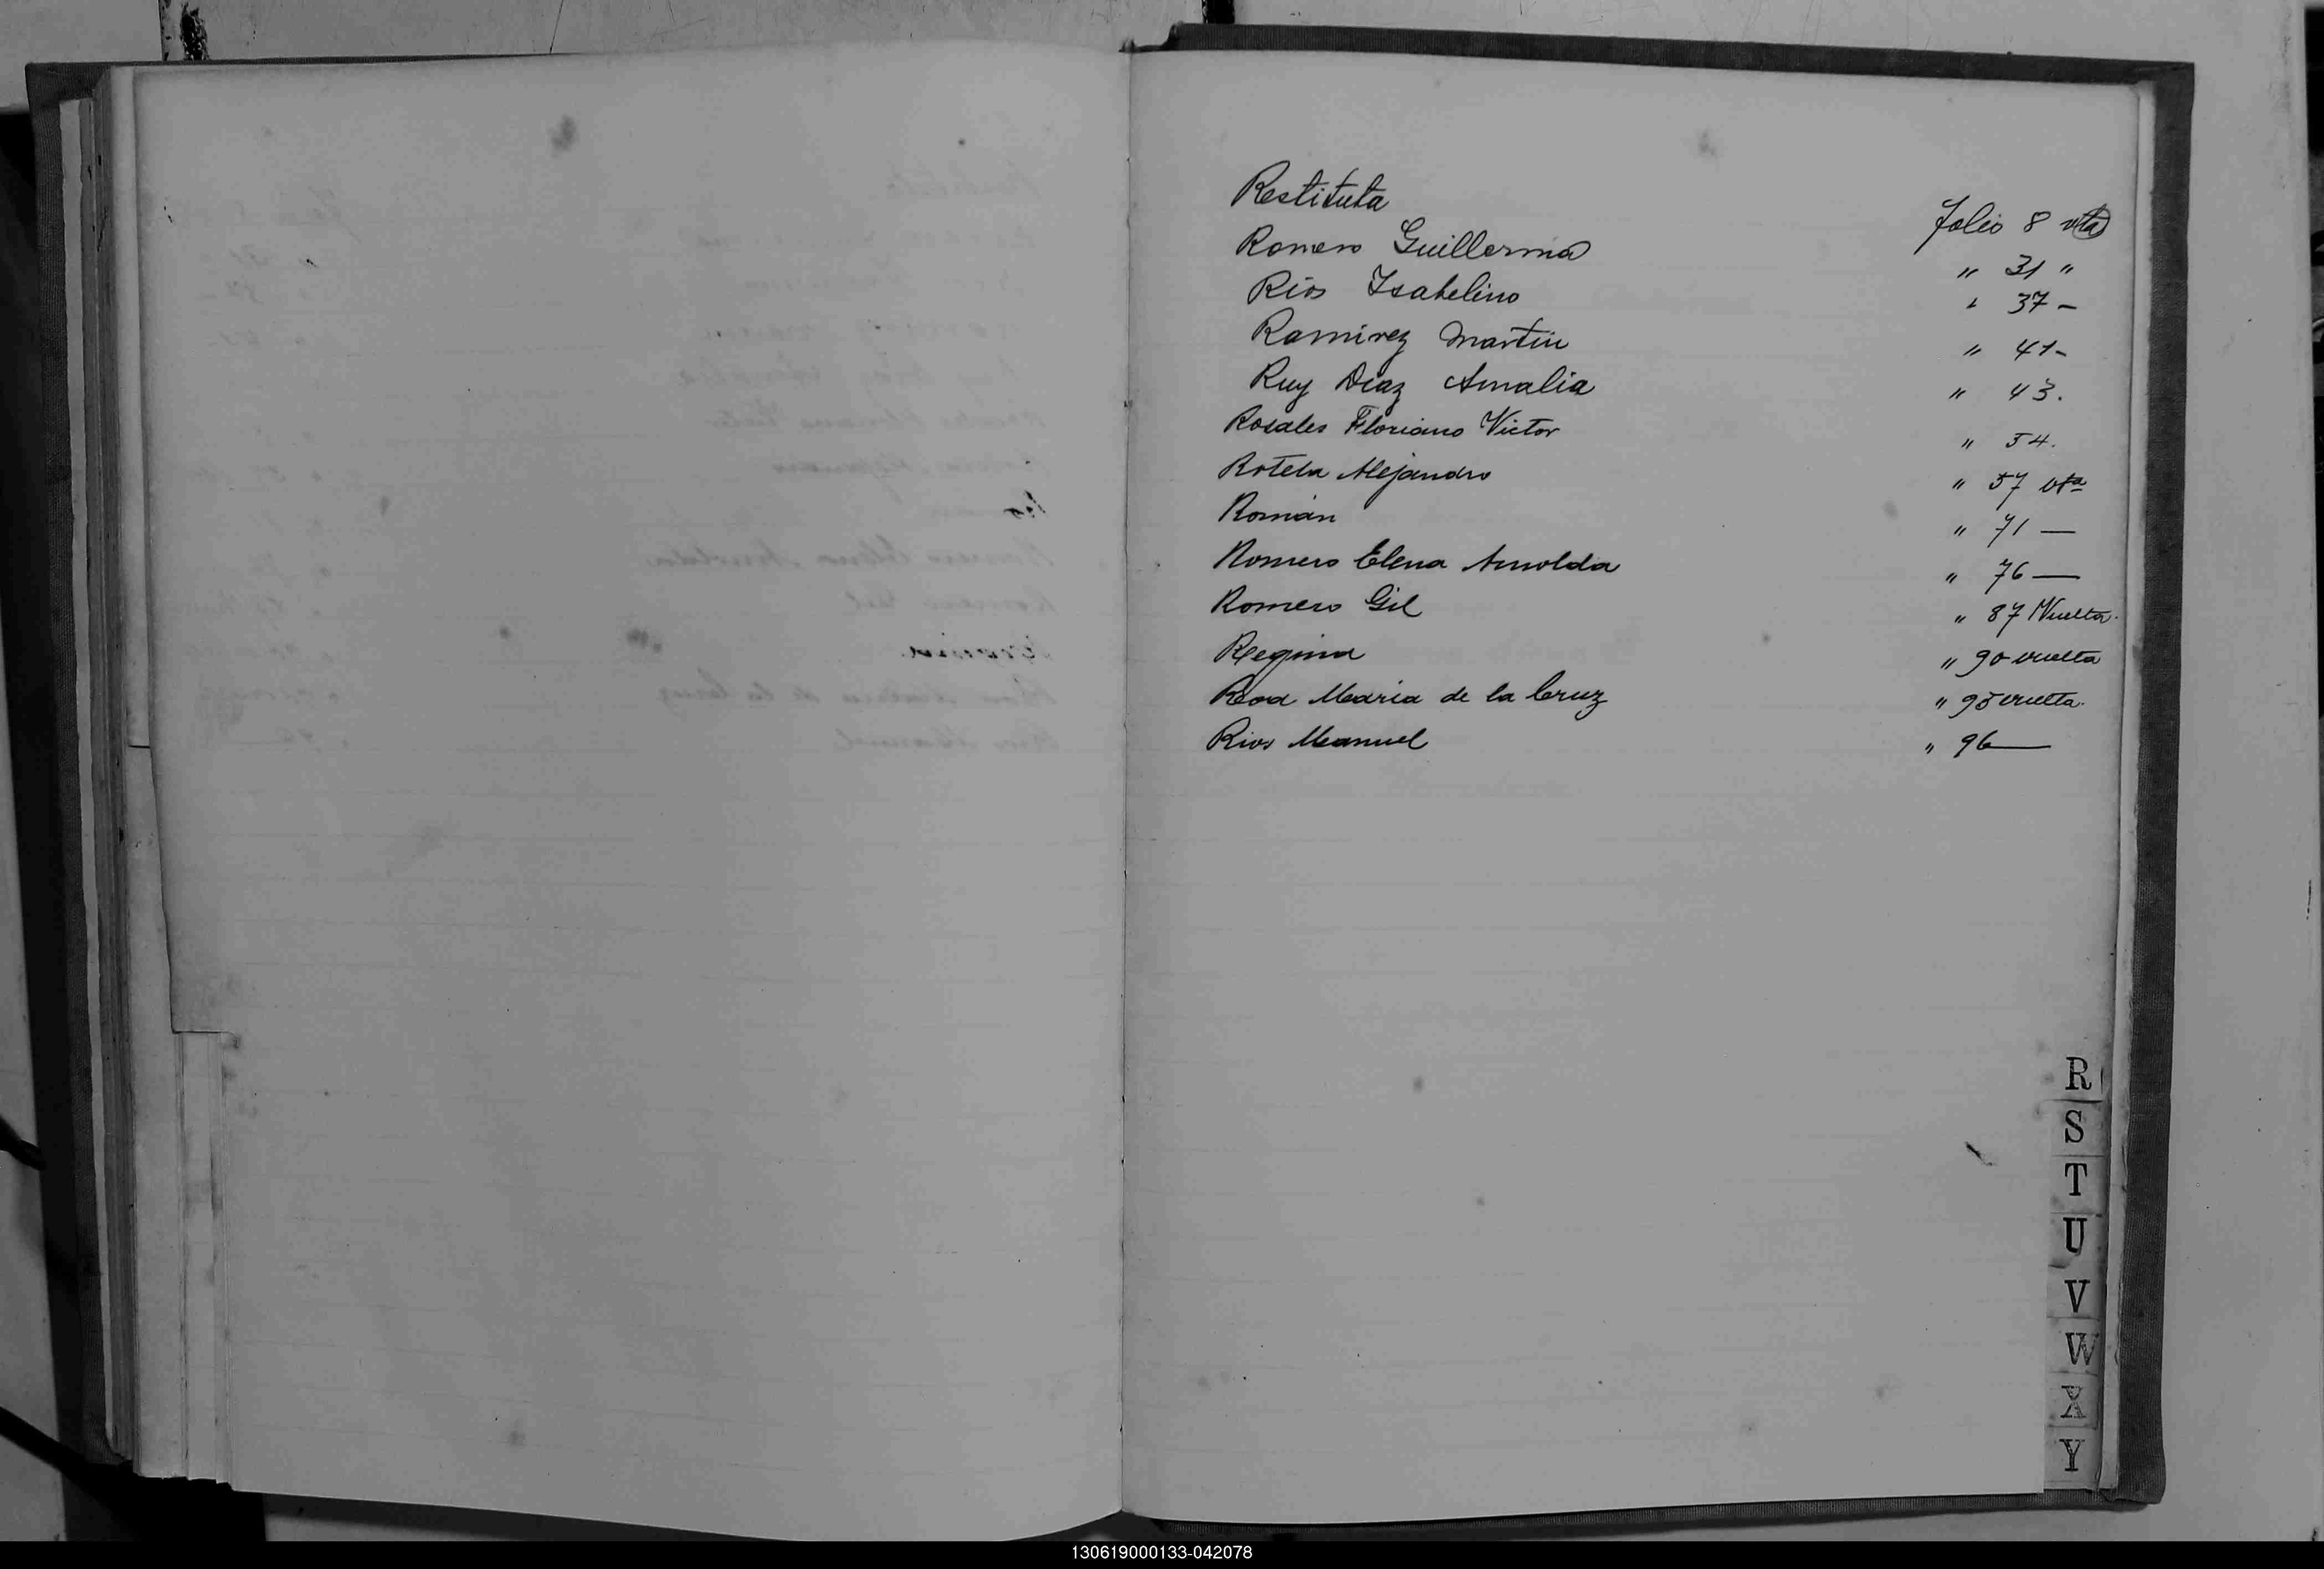 Restituta Folio 8 vta
Romero Guillerma " 31 "
Ríos Isabelino " 37 -
Ramírez Martin " 41 -
Ruy Diaz Amalia " 43.
Rosales Floriano Victor " 54.
Rotela Alejandro " 57 vta
Román " 71 —
Romero Elena Arnolda " 76 —
Romero Gil " 87 Vuelta.
Regina " 90 vuelta
Roa Maria de la Cruz " 95 vuelta.
Rios Manuel " 96 —
R
S
T
U
V
W
X
Y
130619000133-042078